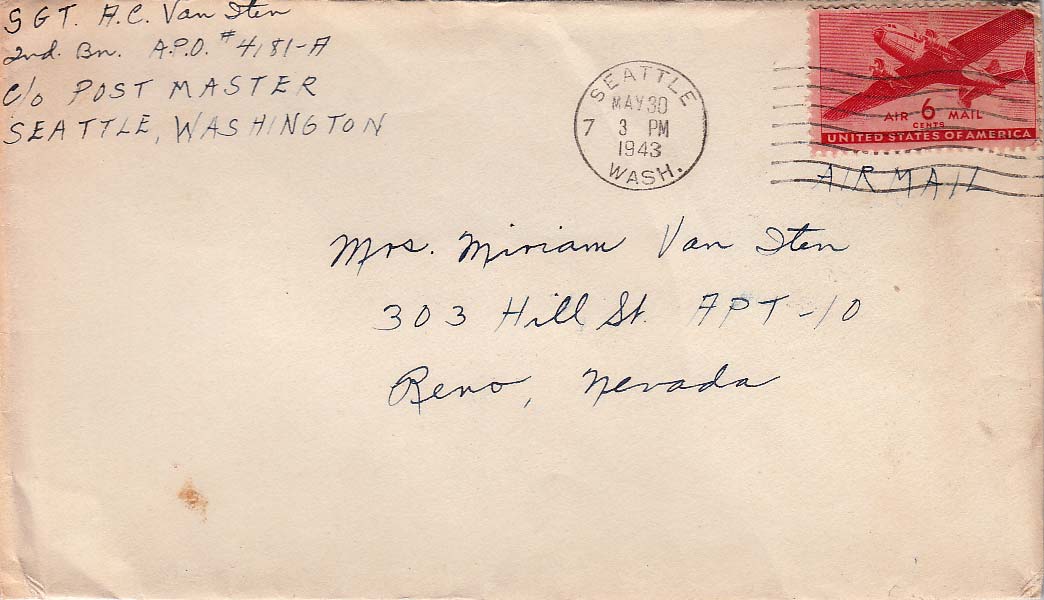 SGT. A.C. Van Iten
2nd. Bn. A.P.O. #4181-A
C/o POST MASTER
SEATTLE, WASHINGTON
SEATTLE
MAY 30
7 3 PM
1943
WASH.
AIR 6 MAIL
CENTS
UNITED STATES OF AMERICA
AIR MAIL
Mrs. Miriam Van Iten
303 Hill St. APT-10
Reno, Nevada